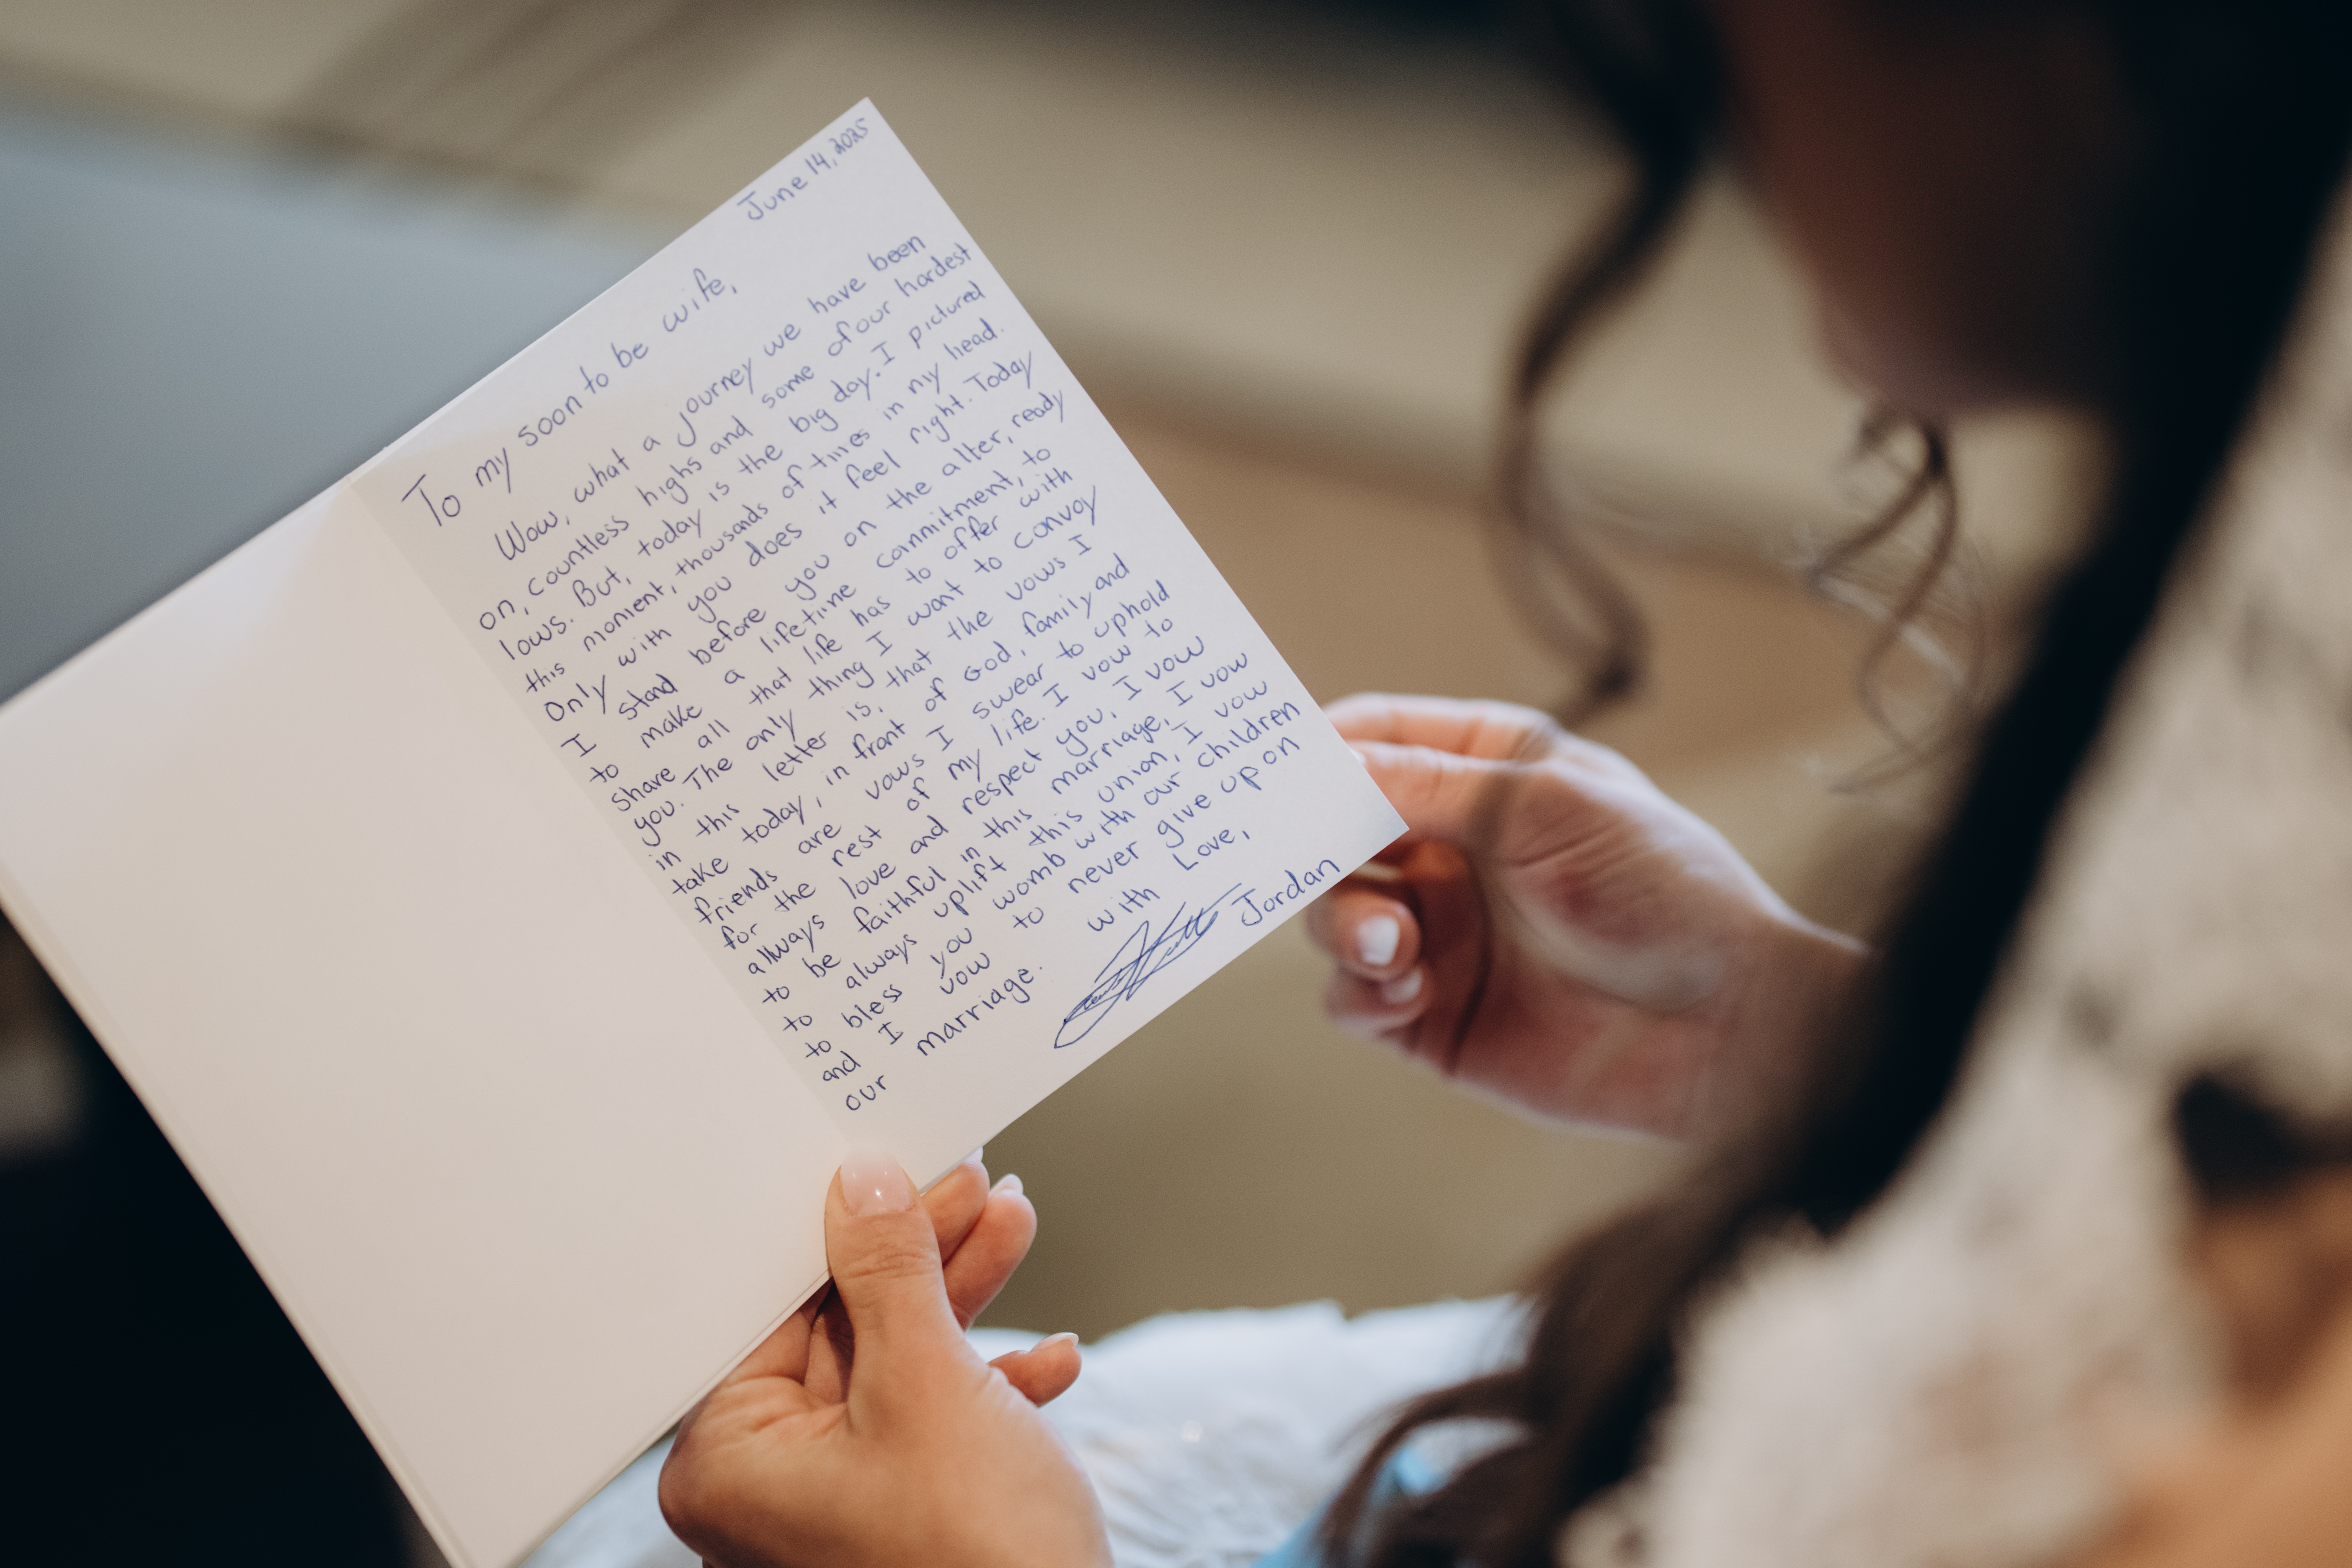 June 14, 2025
To my soon to be wife,
Wow, what a journey we have been
on, countless highs and some of our hardest
lows. But, today is the big day. I pictured
this moment, thousands of times in my head.
Only with you does it feel right. Today
I stand before you on the alter, ready
to make a lifetime commitment, to
share all that life has to offer with
you. The only thing I want to convoy
in this letter is, that the vows I
take today, in front of God, family and
friends are vows I swear to uphold
for the rest of my life. I vow to
always love and respect you, I vow
to be faithful in this marriage, I vow
to always uplift this union, I vow
to bless you womb with our children
and I vow to never give up on
our marriage.
with Love,
Jordan